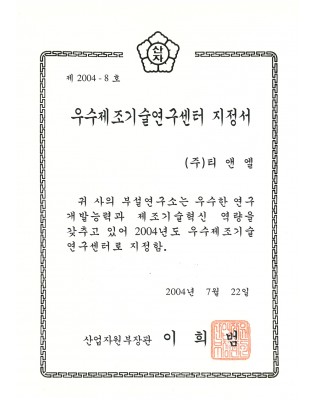 산자
제 2004 - 8 호
우수제조기술연구센터 지정서
(주)티 앤 엘
귀 사의 부설연구소는 우수한 연구
개발능력과 제조기술혁신 역량을
갖추고 있어 2004년도 우수제조기술
연구센터로 지정함.
2004년 7월 22일
산업자원부장관 이 희 범